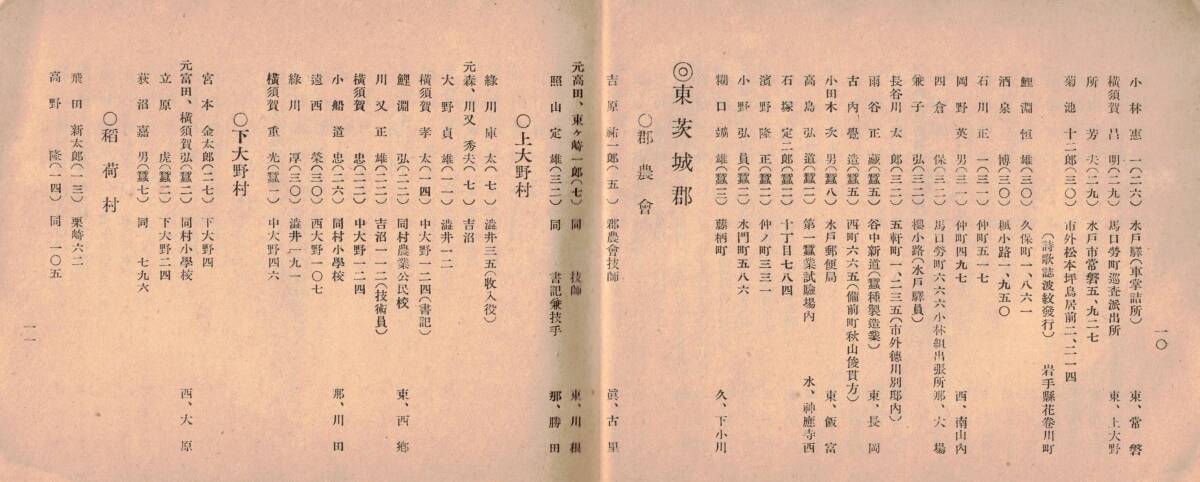 一〇
小林惠一(二六) 水戶驛(車掌詰所) 東、常磐
橫須賀昌明(二九) 馬口勞町巡査派出所 東、上大野
所芳夫(二九) 水戶市常磐五、九二七
菊池十二郎(三〇) 市外松本坪鳥居前二、二一四
(詩歌誌波紋發行) 岩手縣花卷川町
鯉淵恒雄(三〇) 久保町一、八六一
酒泉博(三〇) 楓小路一、九五〇
石川正一(三一) 仲町五七一
岡野英男(三一) 仲町四九七 西、南山內
四倉保(三二) 馬口勞町六六六小林組出張所 那、大場
兼子弘(三二) 櫻小路(水戶驛員)
長谷川太郎(三二) 五軒町一、二三五(市外德川別邸內)
雨谷正藏(蠶五) 谷中新道(蠶種製造業) 東、長岡
古內覺造(蠶五) 西町六六五(備前町秋山俊貫方)
小田木次男(蠶八) 水戶郵便局 東、飯富
高島弘道(蠶二) 第一蠶業試驗場內 水、神應寺西
石塚定二郎(蠶二) 十丁目七八四
濱野隆正(蠶二) 仲ノ町三三一
小野弘員(蠶二) 水門町五八六
糊口雄(蠶三) 藤柄町 久、下小川
◎東茨城郡
〇郡農會
吉原祐一郎(五) 郡農會技師 眞、古里
元高田、東ヶ崎一郎(七) 同 技師 東、川根
照山定雄(三二) 同 書記兼技手 那、勝田
〇上大野村
綠川庫太(七) 澁井三五(收入役)
元森、川又秀夫(七) 吉沼
大野貞雄(一一) 澁井一二
橫須賀孝太(一四) 中大野一二四(書記)
鯉淵弘(二二) 同村農業公民校 東、西鄕
川又正雄(二二) 吉沼一一二(技術員)
橫須賀忠(二二) 中大野一二四
小船道忠(二六) 同村小學校 那、川田
遠西榮(三〇) 西大野一〇七
綠川淳(三〇) 澁井一九一
橫須賀重光(蠶一) 中大野四六
〇下大野村
宮本金太郎(二七) 下大野四
元富田、橫須賀弘(蠶二) 同村小學校 西、大原
立原虎(蠶二) 下大野二四
荻沼嘉男(蠶七) 同 七九六
〇稻荷村
飛田新太郎(一三) 栗崎六二
高野隆(一四) 同 一〇五
一一